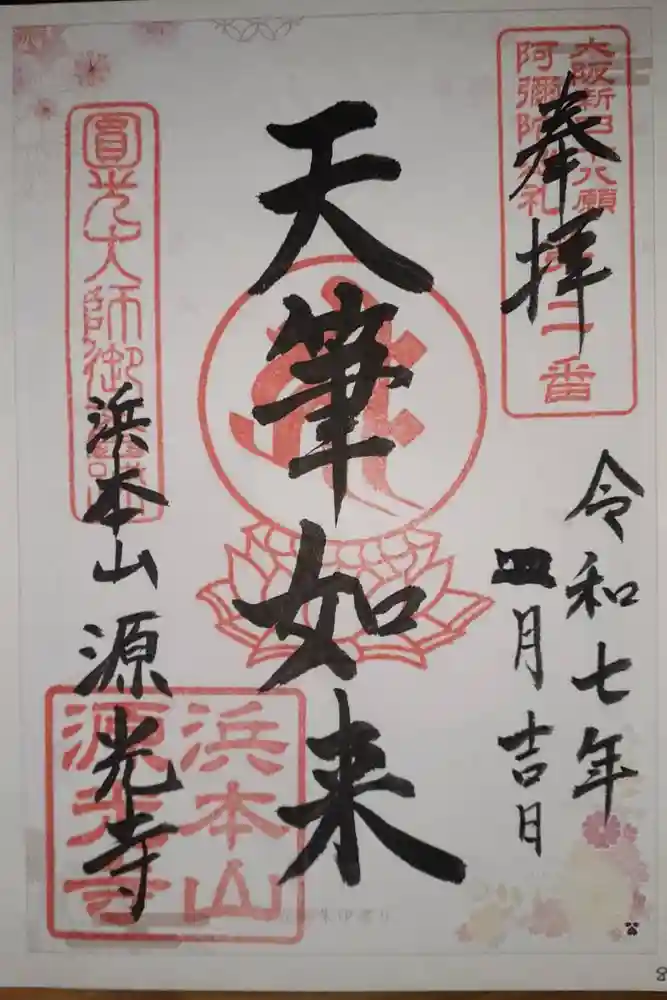 奉拝
大阪新四十八願
阿彌陀巡礼
第二番
令和七年
四月吉日
天筆如来
圓光大師御
浜本山
源光寺
浜本山
源光寺
8